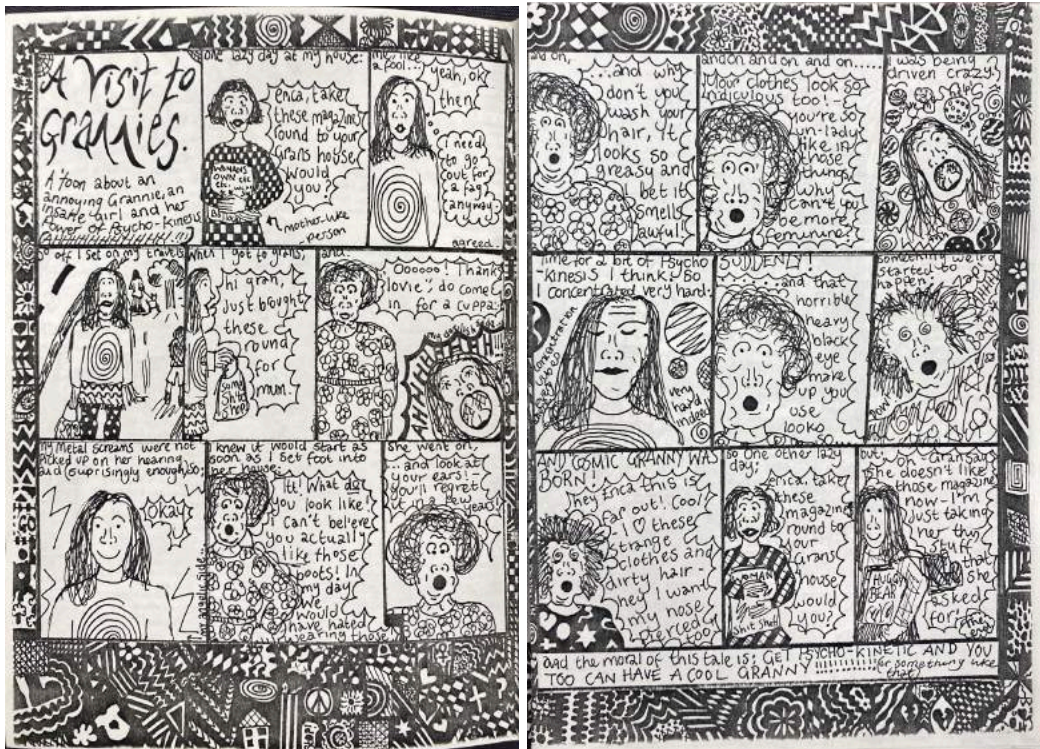 A Visit to
Grannies.
A 'toon about an
annoying Grannie, an
insane girl and her
power of Psycho-Kinesis
one lazy day at my house:
erica, take
these magazines
round to your
grans house
would
you?
WOMANS
OWN
mother-like
person
me, like
a fool...
yeah, ok
then
I need
to go
out for
a fag
anyway.
agreed.
so off I set on my travels,
when I got to grans,
hi gran,
Just bought
these
round
for
mum.
some
Shit
Shop
and:
Oooooo! Thanks
lovie", do come
in for a cuppa!
My Metal screams were not
picked up on her hearing
aid (suprisingly enough) so:
Okay
I knew it would start as
soon as I set foot into
her house:
Itt! What do
you look like!
I can't believe
you actually
like those
boots! In
my day
we
would
have hated
wearing those
She went on,
...and look at
your ears!
you'll regret
it in a few
years!
and on,
...and why
don't you
wash your
hair, it
looks so
greasy and
I bet it
smells
awful!
and on and on and on.....
Your clothes look so
ridiculous too! -
you're so
un-lady
like in
those
things,
why
can't you
be more
feminine?!
I was being
driven crazy!
Time for a bit of Psycho
-Kinesis I think. So
I concentrated very hard:
very
hard
indeed
SUDDENLY!
.........and that
horrible
heavy
black
eye
make
up you
use
looks
so
something weird
started to
happen:
AND COSMIC GRANNY WAS
BORN!
hey Erica this is
far out! Cool
I ♡ these
strange
clothes and
dirty hair -
hey I want
my nose
pierced
too
so One other lazy
day:
erica, take
these
magazines
round to
your
Grans
house
would
you?
WOMAN
Shit Stuff
but,
Gran says
she doesn't like
those magazines
now - I'm
Just taking
her this
stuff
that
she
asked
for.
HUGGY
BEAR
the
end
and the moral of this tale is: GET PSYCHO-KINETIC AND YOU
TOO CAN HAVE A COOL GRANNY!!!!!!!!!! (or something like
that)